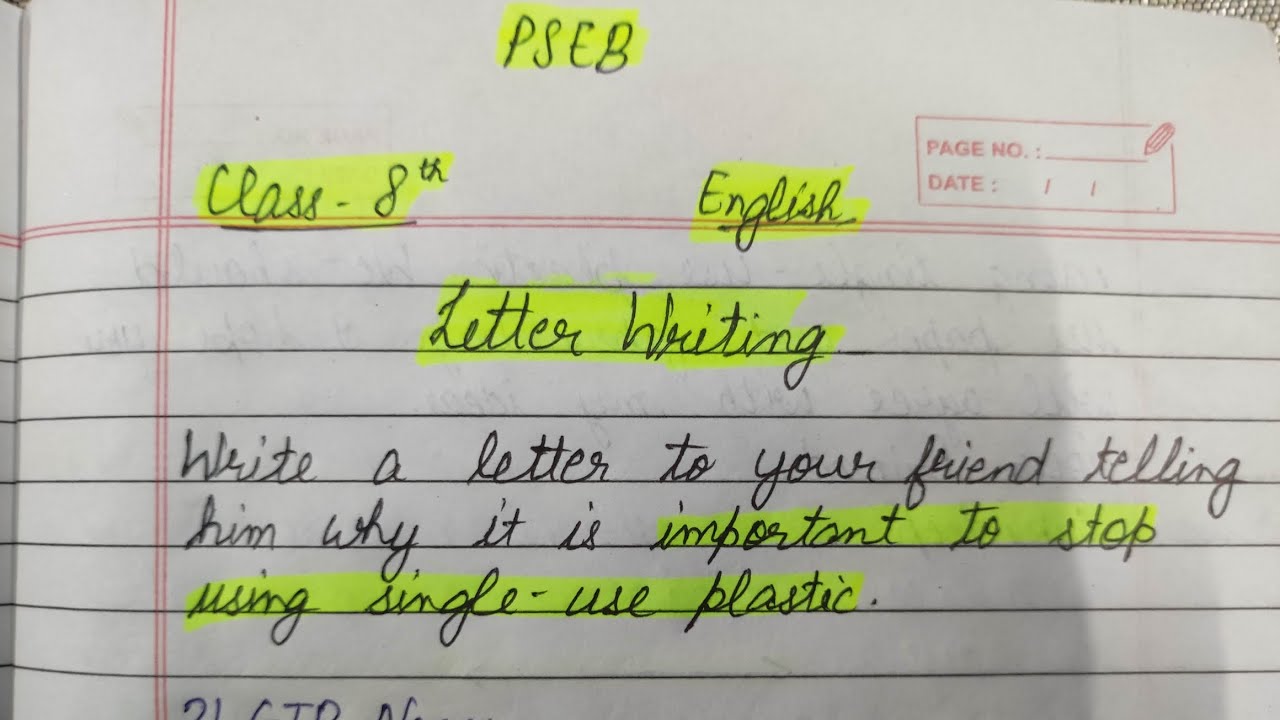 PSEB
PAGE NO.:
DATE: / /
Class - 8th English
Letter Writing
Write a letter to your friend telling
him why it is important to stop
using single-use plastic.